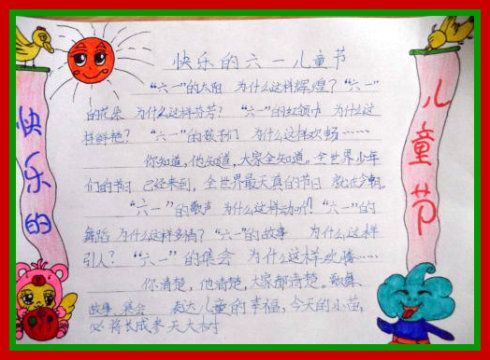 快乐的六一儿童节
"六一"的太阳 为什么这样辉煌?"六一"
的花朵 为什么这样芬芳? "六一"的红领巾 为什么这
样鲜艳? "六一"的孩子们 为什么这样欢畅……
你知道,他知道,大家全知道。全世界少年
们的节日 已经来到,全世界最天真的节日 就在今朝。
"六一"的歌声 为什么这样动听! "六一"的
舞蹈 为什么这样多情? "六一"的故事 为什么这样
引人? "六一"的集会 为什么这样欢腾……
你清楚,他清楚,大家都清楚。歌舞、
故事、集会 表达儿童的幸福,今天的小苗,
必将长成参天大树
快乐的
儿童节